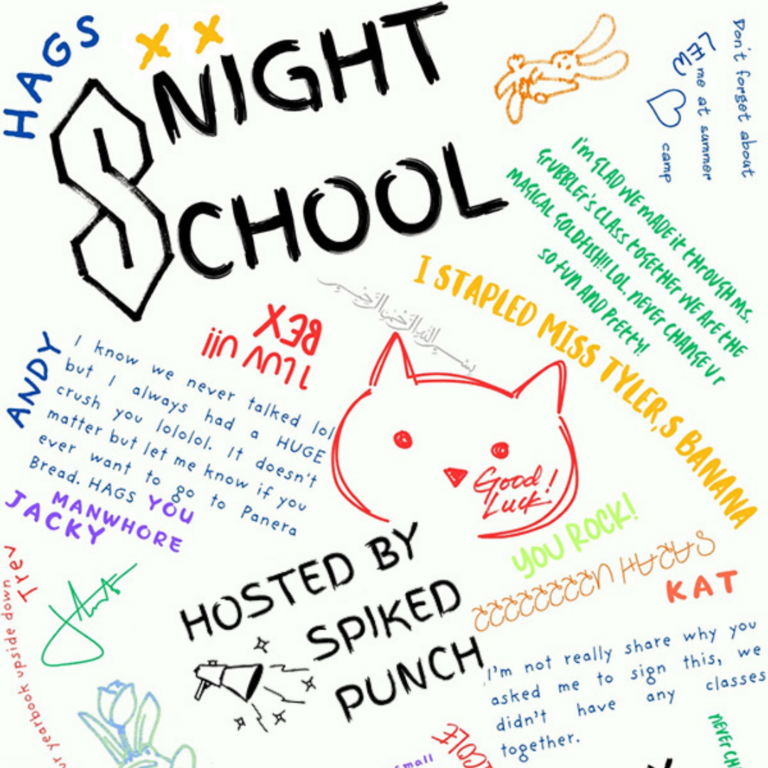 HAGS
NIGHT
SCHOOL
Don't forget about
me at summer
camp
I'M GLAD WE MADE it tHROUGH MS.
GRUBBLER'S CLASS tOGEtHER WE ARE tHE
MAGICAL GOLDFISH!! LOL NEVER CHANGE Ur
SO fUN AND PREttY!
I STAPLED MISS TYLER,S BANANA
بسم الله الرحمن الرحيم
I LUV Uii
BEX
ANDY
I know we never talked lol
but I always had a HUGE
crush you lololol. It doesn't
matter but let me know if you
ever want to go to Panera
Bread. HAGS YOU
MANWHORE
JACKY
Good!
Luck!
YOU ROCK!
HOSTED BY
SPIKED
PUNCH
KAT
I'm not really share why you
asked me to sign this, we
didn't have any classes
together.
Trev
ur yearbook upside down
small
COLE
NEVER CH